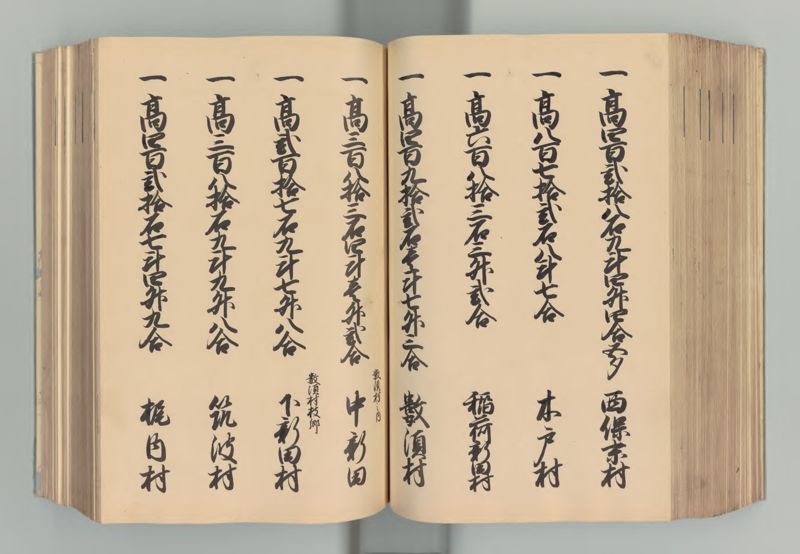 一 高四百弐拾八石九斗四升四合五夕 西保末村
一 高八百七拾弐石八斗七合 木戸村
一 高六百八拾三石三升弐合 稲荷新田村
一 高四百九拾弐石壱斗七升三合 数須村
数須村之内
一 高三百八拾三石四斗壱升弐合 中新田
数須村枝郷
一 高弐百拾七石九斗七升八合 下新田村
一 高三百八拾石九斗九升八合 筑波村
一 高四百弐拾石七斗四升九合 梶内村